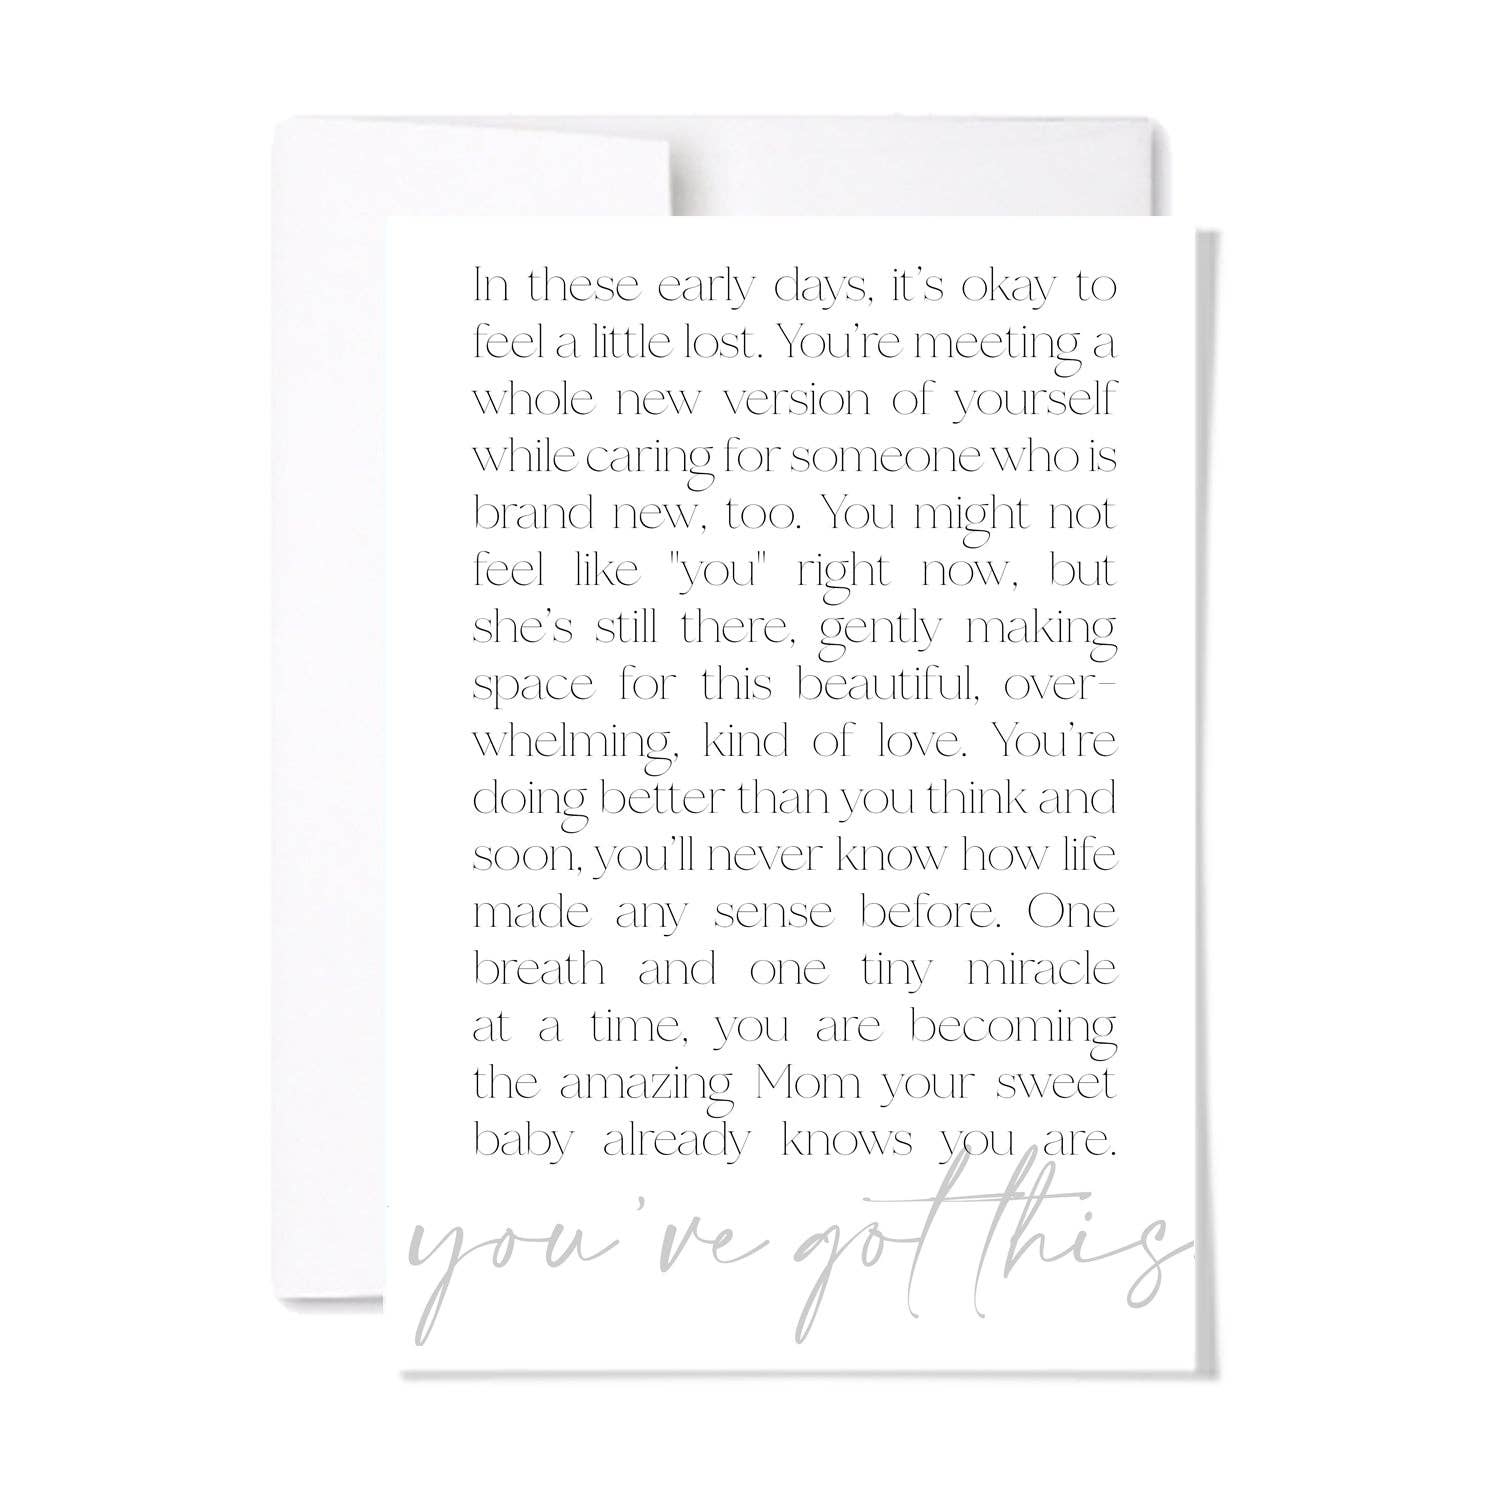 In these early days, it's okay to
feel a little lost. You're meeting a
whole new version of yourself
while caring for someone who is
brand new, too. You might not
feel like "you" right now, but
she's still there, gently making
space for this beautiful, over-
whelming, kind of love. You're
doing better than you think and
soon, you'll never know how life
made any sense before. One
breath and one tiny miracle
at a time, you are becoming
the amazing Mom your sweet
baby already knows you are.
you've got this.